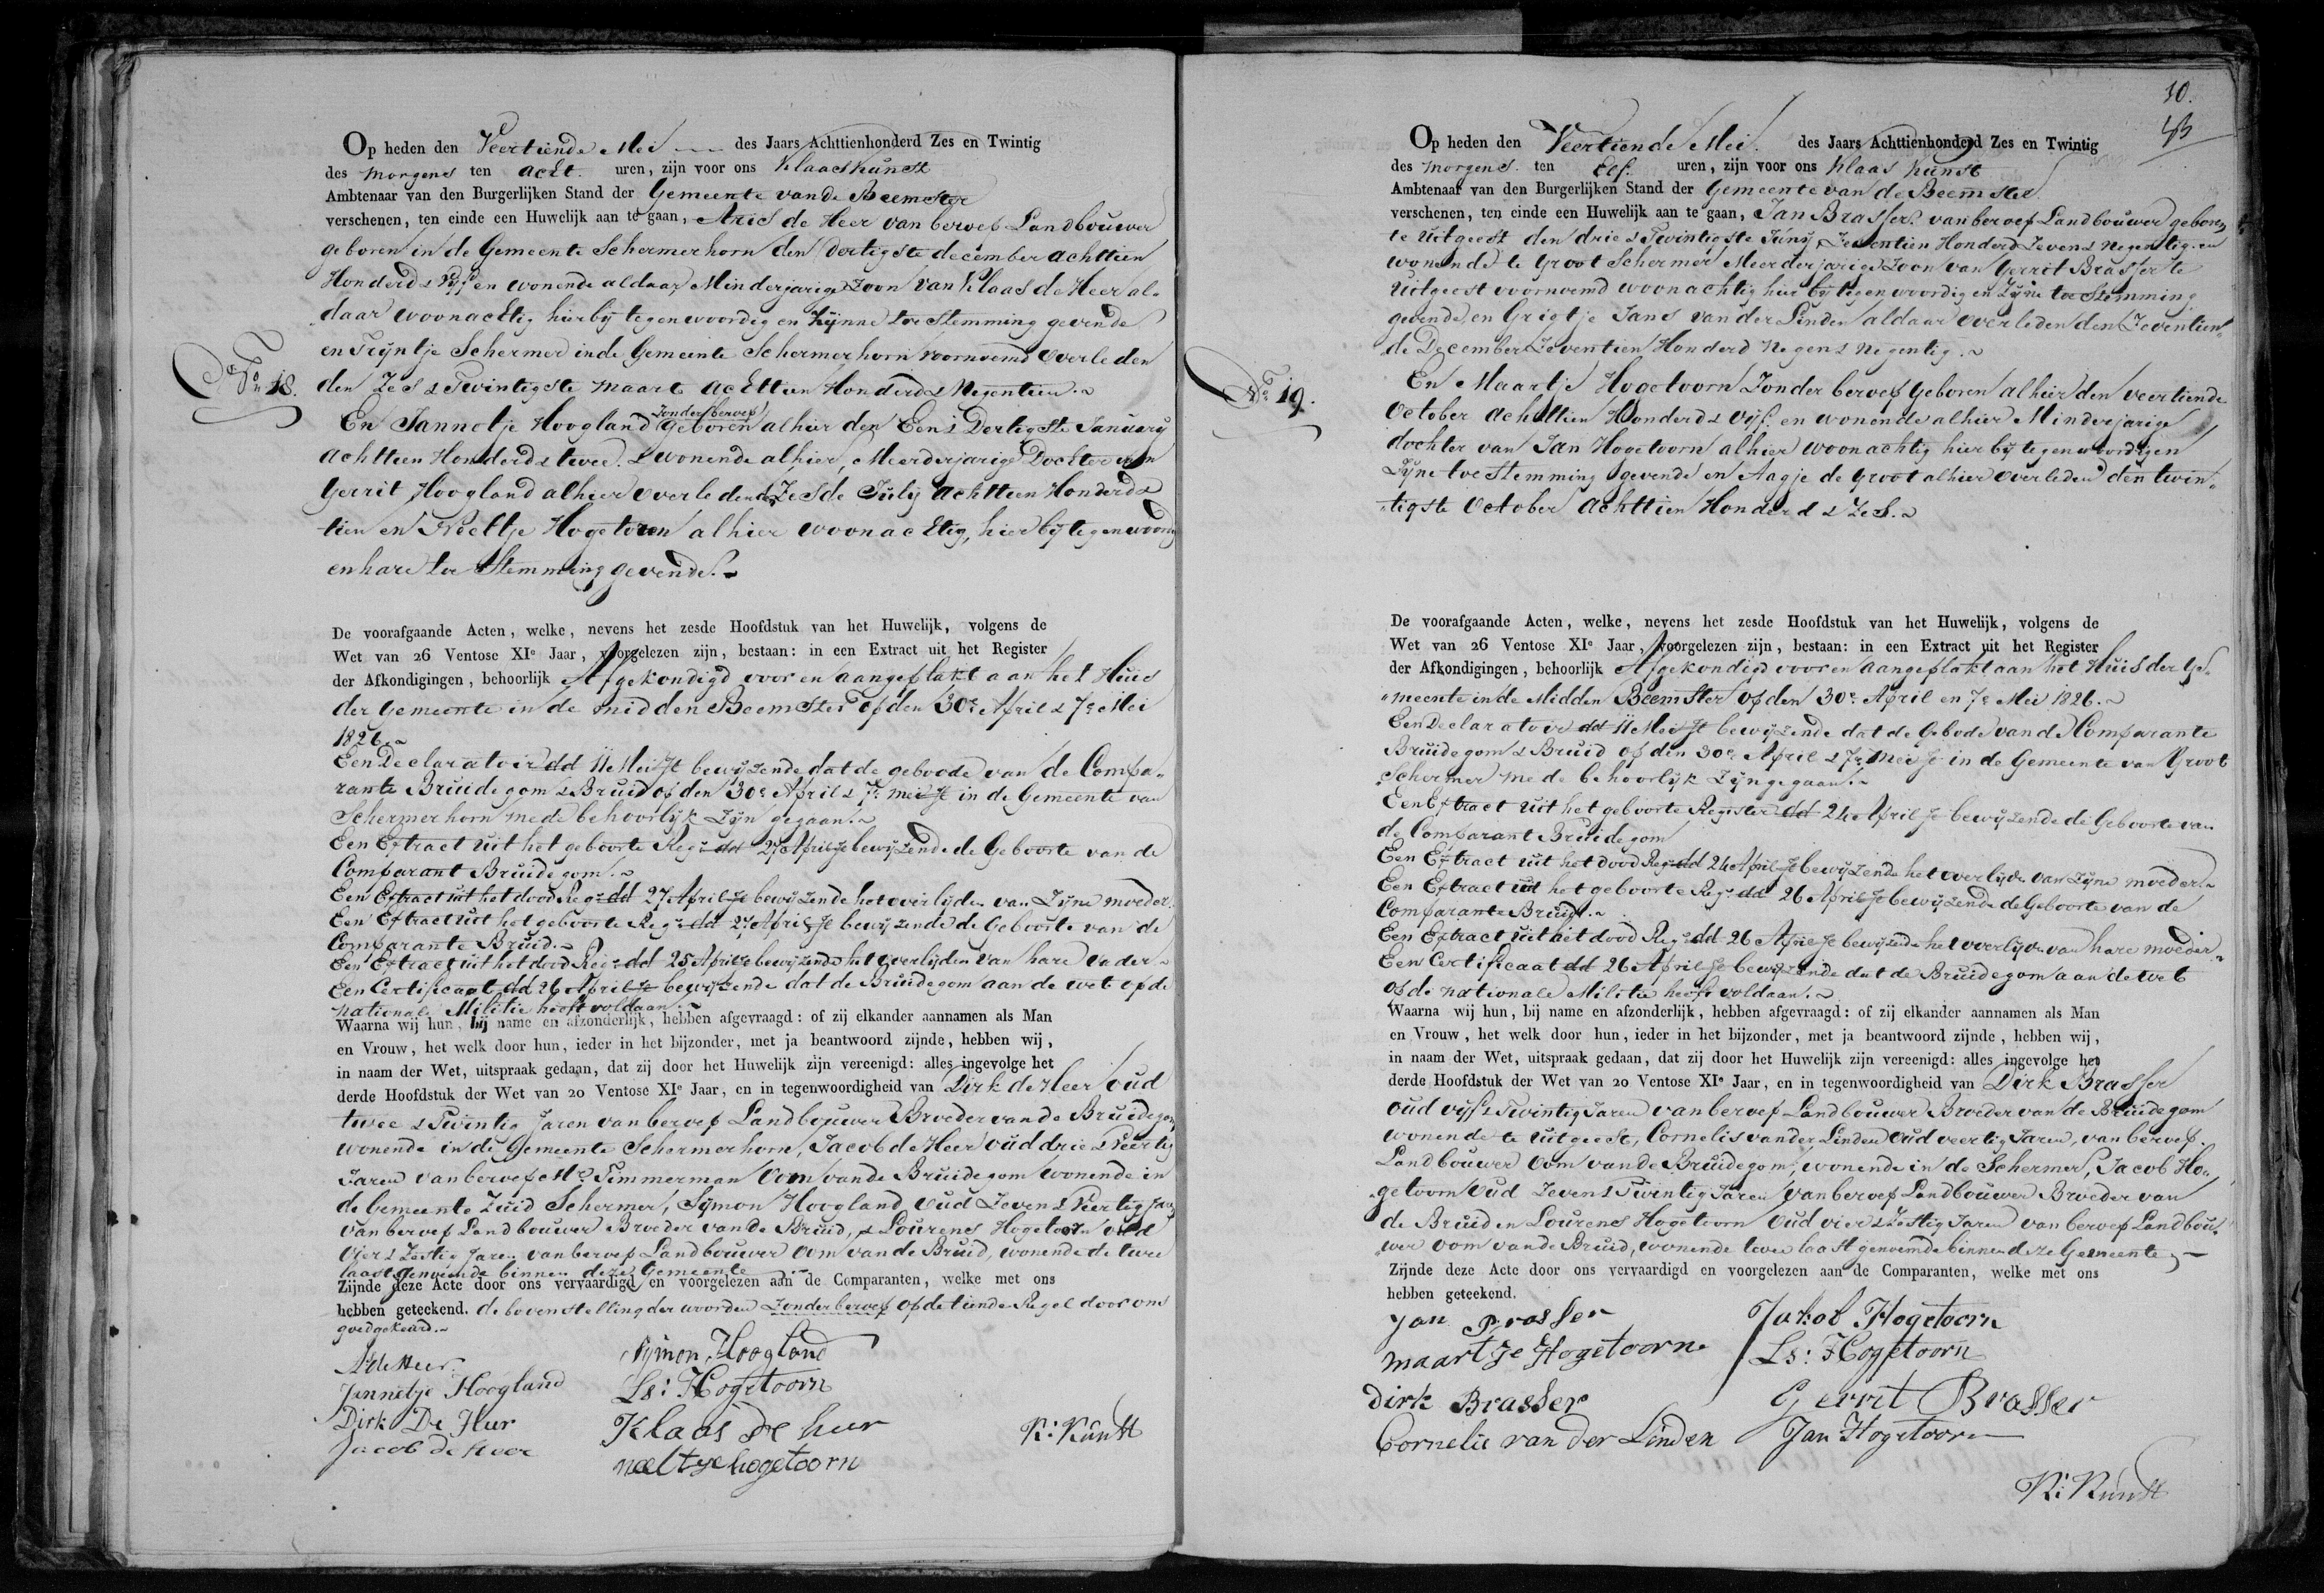 Op heden den Veertiende Mei des Jaars Achttienhonderd Zes en Twintig
des morgens ten acht uren, zijn voor ons Klaas Kunst
Ambtenaar van den Burgerlijken Stand der Gemeente van de Beemster
verschenen, ten einde een Huwelijk aan te gaan, Aries de Heer van beroep Landbouwer
geboren in de Gemeente Schermerhorn den dertigste december achttien
Honderd & vijf en wonende aldaar, Minderjarige Zoon van Klaas de Heer al„
daar woonachtig hierbij tegenwoordig en zijnne toestemming gevende
en Trijntje Schermer in de Gemeente Schermerhorn voornoemd overleden
No. 18. den Zes & Twintigste maart achttien Honderd & Negentien.
En Jannetje Hoogland zonder beroep geboren alhier den Een & Dertigste January
achttien Honderd & twee. & wonende alhier, Meerderjarige Dochter van
Gerrit Hoogland alhier overleden d. Zesde July achttien Honderd &
tien en Neeltje Hogetoren alhier woonachtig, hier bij tegenwoordig
en hare toe Stemming gevende.
De voorafgaande Acten, welke, nevens het zesde Hoofdstuk van het Huwelijk, volgens de
Wet van 26 Ventose XIe Jaar, voorgelezen zijn, bestaan: in een Extract uit het Register
der Afkondigingen, behoorlijk Afgekondigd voor en aangeplakt aan het Huis
der Gemeente in de midden Beemster op den 30e April & 7e Mei
1826.
Een Declaratoir dd 11 Mei jl bewijzende dat de geboode van de Compa„
rante Bruidegom & Bruid op den 30e April & 7e mei jl in de Gemeente van
Schermerhorn mede behoorlijk zijn gegaan.
Een Extract uit het geboorte Regr dd 27 April jl bewijzende de Geboorte van de
Comparant Bruidegom.
Een Extract uit het dood Regr dd 27 April jl bewijzende het overlijden van Zijne moeder.
Een Extract uit het geboorte Regr dd 27 April jl bewijzende de Geboorte van de
Comparante Bruid.
Een Extract uit het dood Regr dd 25 April jl bewijzende het overlijden van hare Vader
Een Certificaat dd 26 April jl bewijzende dat de Bruidegom aan de wet op de
nationale Militie heeft voldaan.
Waarna wij hun, bij name en afzonderlijk, hebben afgevraagd: of zij elkander aannamen als Man
en Vrouw, het welk door hun, ieder in het bijzonder, met ja beantwoord zijnde, hebben wij,
in naam der Wet, uitspraak gedaan, dat zij door het Huwelijk zijn vereenigd: alles ingevolge het
derde Hoofdstuk der Wet van 20 Ventose XIe Jaar, en in tegenwoordigheid van Dirk de Heer oud
twee & Twintig Jaren van beroep Landbouwer Broeder van de Bruidegom,
wonende in de Gemeente Schermerhorn, Jacob de Heer oud drie & Veertig
Jaren van beroep Mr Timmerman Oom van de Bruidegom wonende in
de Gemeente Zuid Schermer, Sijmon Hoogland oud Zeven & Veertig Jaren
van beroep Landbouwer Broeder van de Bruid, & Lourens Hogetoorn oud
vier & Zestig Jaren van beroep Landbouwer Oom van de Bruid, wonende de twee
laatstgenoemde binnen deze Gemeente
Zijnde deze Acte door ons vervaardigd en voorgelezen aan de Comparanten, welke met ons
hebben geteekend. de bovenstelling der woorden zonder beroep op de tiende Regel door ons
goedgekeurd.
A de Heer. Sijmon Hoogland
Jannetje Hoogland Ls: Hogetoorn
Dirk De Heer Klaas de heer K: Kunst
Jacob de heer neeltje hogetoorn
10.
Op heden den Veertiende Mei. des Jaars Achttienhonderd Zes en Twintig
des morgens ten Elf uren, zijn voor ons Klaas Kunst
Ambtenaar van den Burgerlijken Stand der Gemeente van de Beemster
verschenen, ten einde een Huwelijk aan te gaan, Jan Brasser van beroep Landbouwer geboren
te Uitgeest den drie & Twintigste Junij Zeventien Honderd Zeven & Negentig en
wonende te Groot Schermer Meerderjarige Zoon van Gerrit Brasser te
Uitgeest voornoemd woonachtig hier bij tegenwoordig en Zijne toe Stemming
gevende en Grigtje Jans van der Linden aldaar overleden den Zeventien„
de December Zeventien Honderd Negen & Negentig.
No. 19. En Maartje Hogetoorn Zonder beroep geboren alhier den veertiende
October achttien Honderd & vijf en wonende alhier Minderjarige
dochter van Jan Hogetoorn alhier woonachtig hier bij tegenwoordig en
Zijne toe Stemming gevende en Aagje de Groot alhier overleden den twin„
„tigste October achttien Honderd & Zes.
De voorafgaande Acten, welke, nevens het zesde Hoofdstuk van het Huwelijk, volgens de
Wet van 26 Ventose XIe Jaar, voorgelezen zijn, bestaan: in een Extract uit het Register
der Afkondigingen, behoorlijk Afgekondigd voor en aangeplakt aan het Huis der Ge„
„meente in de Midden Beemster op den 30e April en 7e Mei 1826.
Een Declaratoir dd 11 Mei jl bewijzende dat de Gebode van de Comparante
Bruidegom & Bruid op den 30e April & 7e mei jl in de Gemeente van Groot
Schermer mede behoorlijk Zijn gegaan.
Een Extract uit het geboorte Register dd 24 April jl bewijzende de Geboorte van
de Comparant Bruidegom
Een Extract uit het dood Regr dd 24 April jl bewijzende het overlijden van Zijne moeder
Een Extract uit het geboorte Regr dd 26 April jl bewijzende de Geboorte van de
Comparante Bruid.
Een Extract uit het dood Regr dd 26 April jl bewijzende het overlijden van hare moeder
Een Certificaat dd 26 April jl bewijzende dat de Bruidegom aan de wet
op de nationale Militie heeft voldaan.
Waarna wij hun, bij name en afzonderlijk, hebben afgevraagd: of zij elkander aannamen als Man
en Vrouw, het welk door hun, ieder in het bijzonder, met ja beantwoord zijnde, hebben wij,
in naam der Wet, uitspraak gedaan, dat zij door het Huwelijk zijn vereenigd: alles ingevolge het
derde Hoofdstuk der Wet van 20 Ventose XIe Jaar, en in tegenwoordigheid van Dirk Brasser
oud vijf & Twintig Jaren van beroep Landbouwer Broeder van de Bruidegom
wonende te Uitgeest, Cornelis van der Linden oud veertig Jaren, van beroep
Landbouwer Oom van de Bruidegom, wonende in de Schermer, Jacob Ho„
„getoorn Oud Zeven & Twintig Jaren van beroep Landbouwer Broeder van
de Bruid en Lourens Hogetoorn oud vier & Zestig Jaren van beroep Landbou„
wer oom van de Bruid, wonende twee laatstgenoemde binnen deze Gemeente,
Zijnde deze Acte door ons vervaardigd en voorgelezen aan de Comparanten, welke met ons
hebben geteekend.
Jan Brasser Jakob Hogetoorn
maartje Hogetoorn Ls: Hogetoorn
Dirk Brasser Gerrit Brasser
Cornelis van der Linden Jan Hogetoorn
K: Kunst